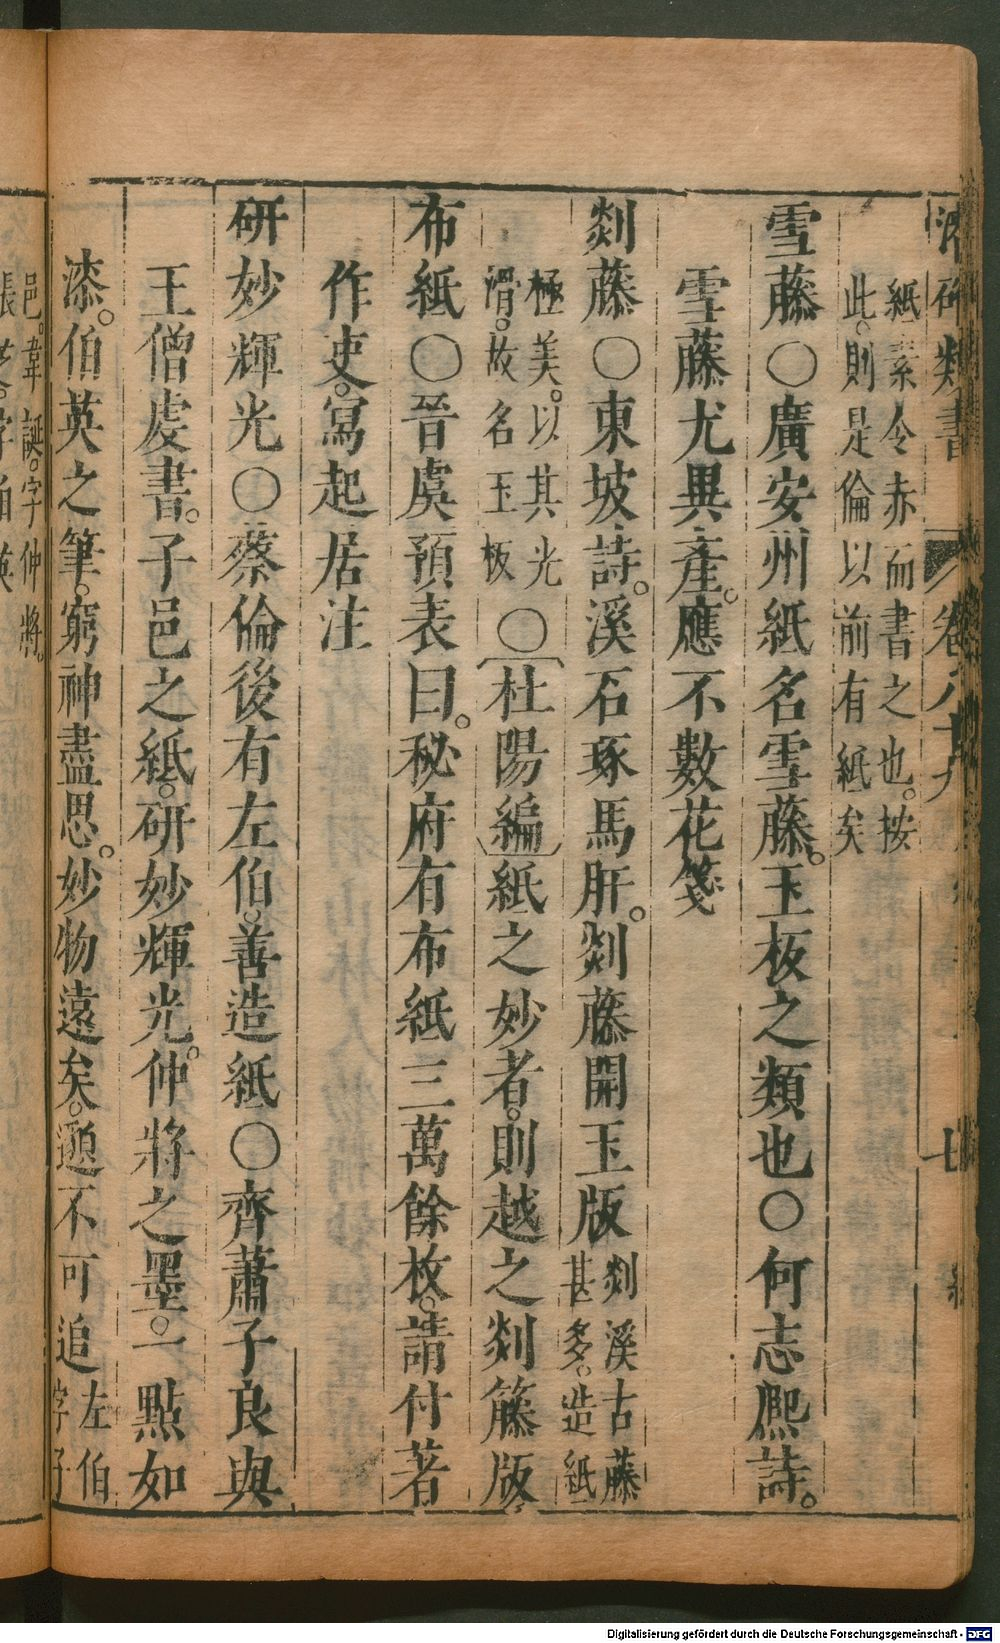 紙素令赤而書之也。按
此。則是倫以前有紙矣
雪藤〇廣安州紙名雪藤。玉板之類也〇何志熙詩。
雪藤尤異產。應不數花箋
剡藤〇東坡詩。溪石琢馬肝。剡藤開玉版 剡溪古藤甚多。造紙
極美。以其光滑。故名玉板〇杜陽編 紙之妙者。則越之剡籐版
布紙〇晉虞預表曰。秘府有布紙三萬餘枚。請付著
作吏。寫起居注
研妙輝光〇蔡倫後有左伯。善造紙〇齊蕭子良與
王僧虔書。子邑之紙。研妙輝光。仲將之墨。一點如
漆。伯英之筆。窮神盡思。妙物遠矣。邈不可追 左伯字子
邑。韋誕。字仲將。
類書
卷八十九
七
Digitalisierung gefördert durch die Deutsche Forschungsgemeinschaft - DFG